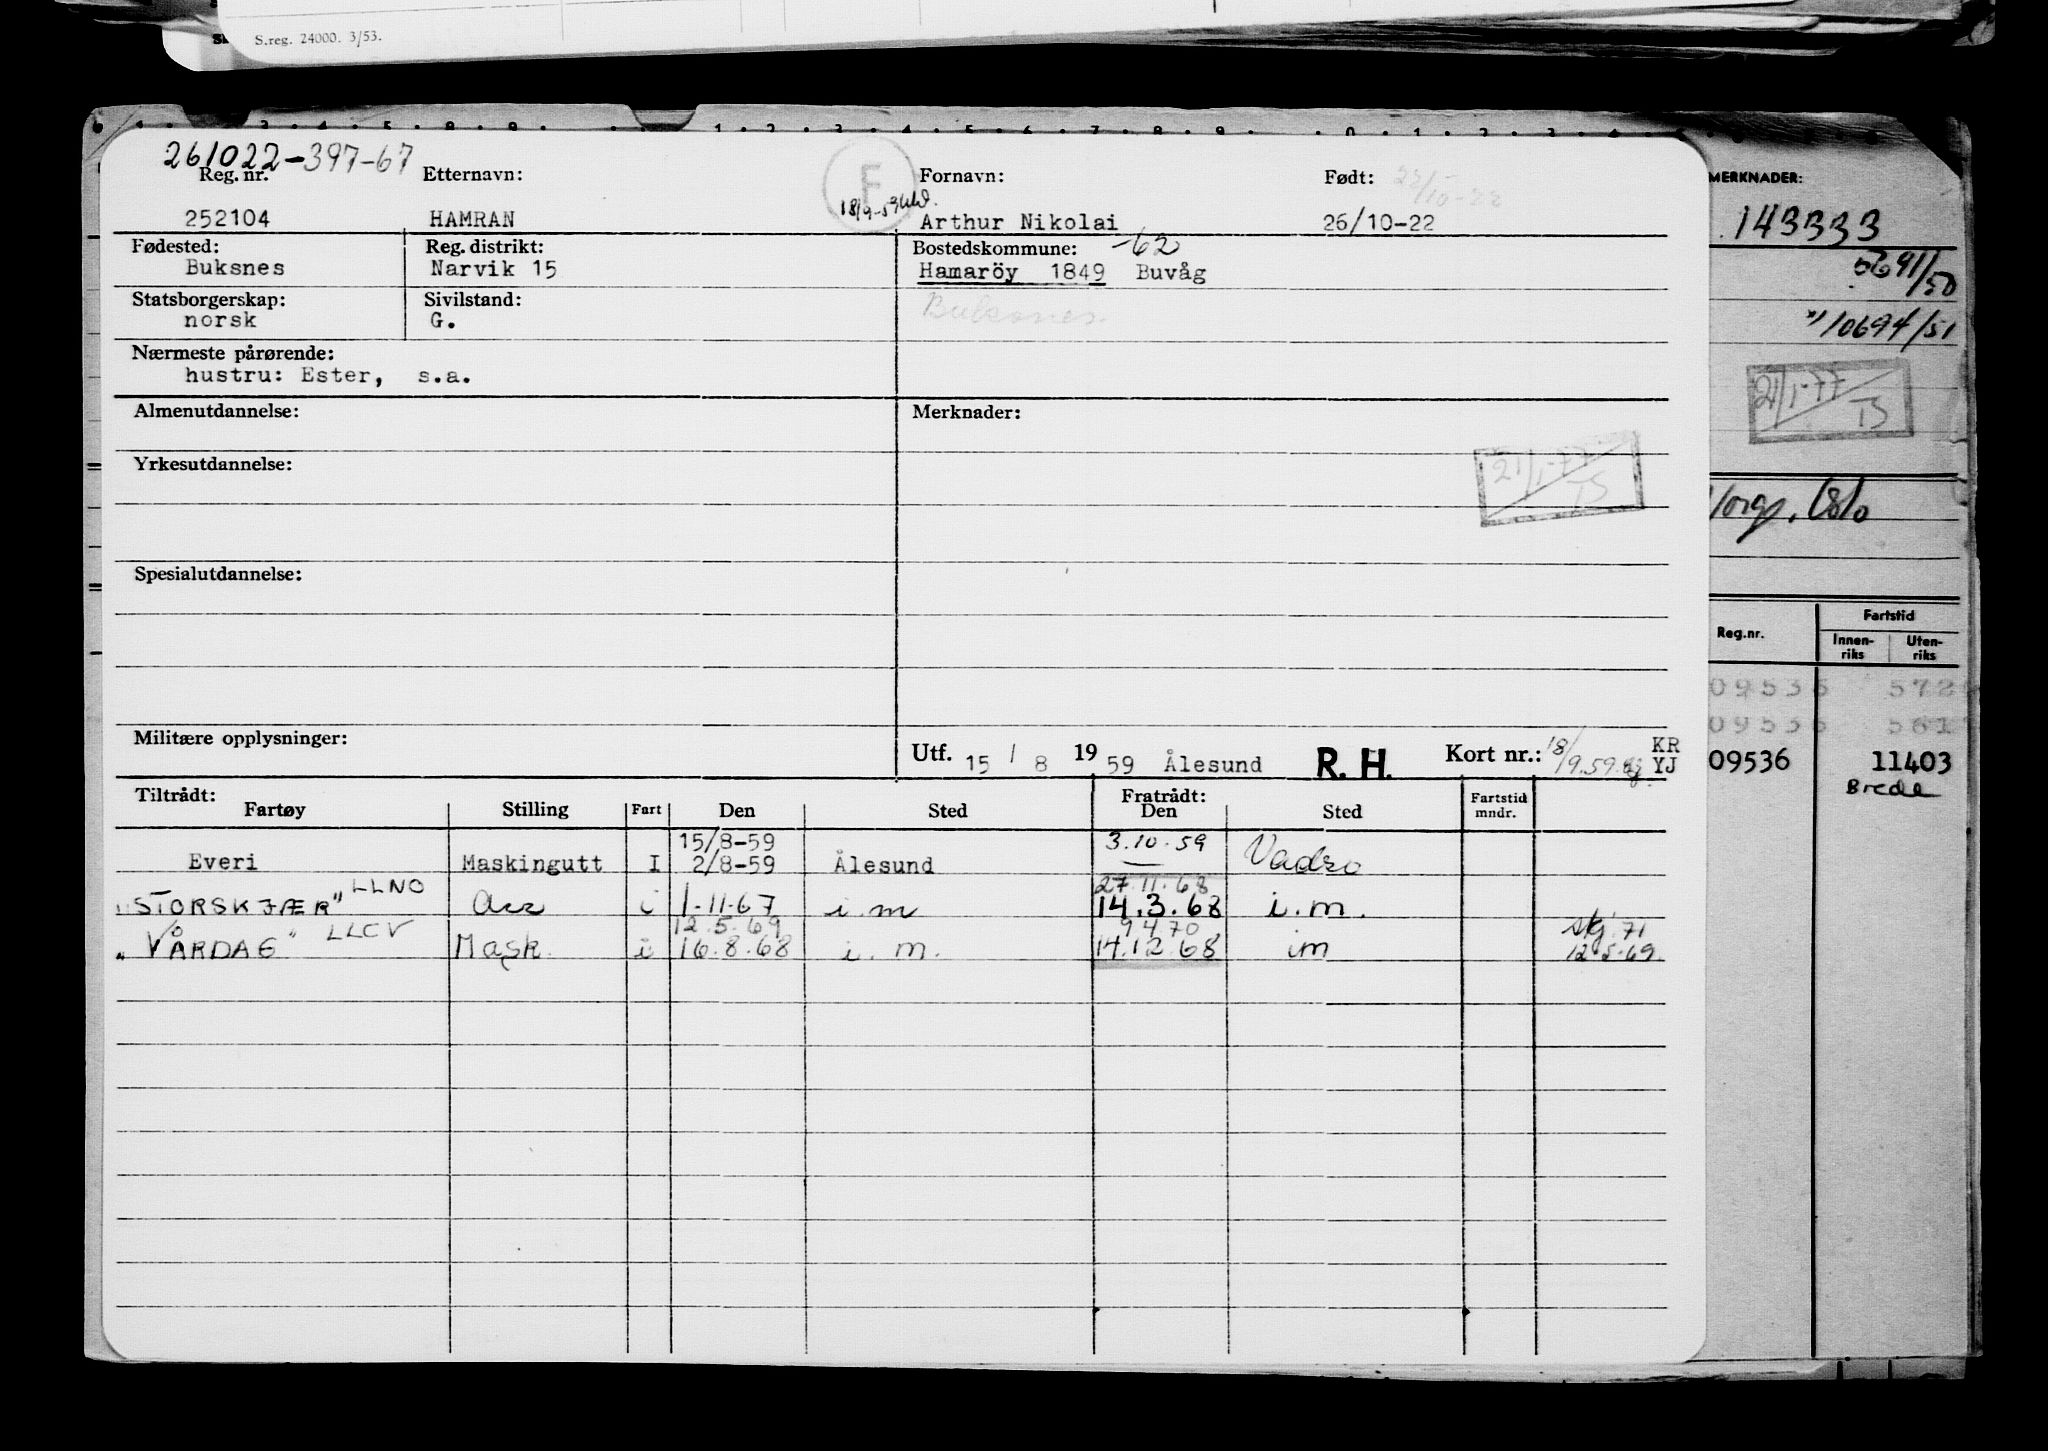 S.reg. 24000. 3/53.
261022-397-67
Reg. nr. Etternavn: F Fornavn: Født: 22/10-22
18/9-59
252104 HAMRAN Arthur Nikolai 26/10-22
Fødested: Reg. distrikt: Bostedskommune: -62
Buksnes Narvik 15 Hamaröy 1849 Buvåg
Statsborgerskap: Sivilstand: Buksnes
norsk G.
Nærmeste pårørende:
hustru: Ester, s.a.
Almenutdannelse: Merknader:
Yrkesutdannelse:
21/1-77
TS
Spesialutdannelse:
Militære opplysninger:
Utf. 15 / 8 1959 Ålesund R. H. Kort nr.: 18/9.59. KR
YJ
Tiltrådt: Fratrådt:
Fartøy Stilling Fart Den Sted Den Sted Fartstid mndr.
15/8-59 3.10.59
Everi Maskingutt I 2/8-59 Ålesund Vadsø
27.11.68
"STORSKJÆR" LLNO i 1-11-67 i m 14.3.68 i.m.
12.5.69 9 4 70 71
"VÅRDAG" LLCV Mask. i 16.8.68 i.m. 14.12.68 im 12.5.69.
MERKNADER:
143333
5691/50
10694/51
21/1-77
TS
Oslo
Reg.nr. Fartstid
Innen-riks Uten-riks
09536 572
09536 561
09536 11403
Brede